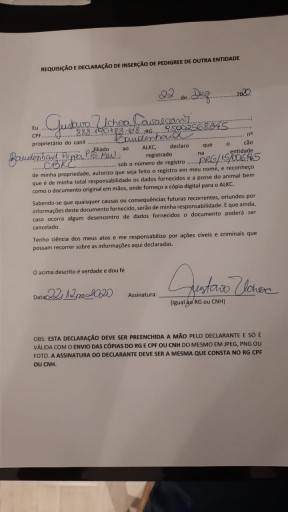 REQUISIÇÃO E DECLARAÇÃO DE INSERÇÃO DE PEDIGREE DE OUTRA ENTIDADE
22 de Dez 2020
Eu Gustavo Uchoa Cavalcanti
CPF RG
proprietário do canil Baudenhard nº
filiado ao ALKC, declaro que o cão
Baudenhard registrado na entidade
CBKC sob o número de registro
de minha propriedade, autorizo que seja feito o registro em meu nome, e reconheço
que é de minha total responsabilidade os dados fornecidos e a posse do animal bem
como o documento original em mãos, onde forneço a cópia digital para o ALKC.
Sabendo-se que qualquer causas ou consequências futuras recorrentes, oriundos por
informações deste documento fornecido, serão de minha responsabilidade. E que ainda,
caso ocorra algum desencontro de dados fornecidos o documento poderá ser
cancelado.
Tenho ciência dos meus atos e me responsabilizo por ações cíveis e criminais que
possam recorrer sobre as informações aqui declaradas.
O acima descrito é verdade e dou fé
Data: 2020 Assinatura: Gustavo Uchoa
(Igual ao RG ou CNH)
OBS: ESTA DECLARAÇÃO DEVE SER PREENCHIDA A MÃO PELO DECLARANTE E SÓ É
VÁLIDA COM O ENVIO DAS CÓPIAS DO RG E CPF OU CNH DO MESMO EM JPEG, PNG OU
FOTO. A ASSINATURA DO DECLARANTE DEVE SER A MESMA QUE CONSTA NO RG CPF
OU CNH.